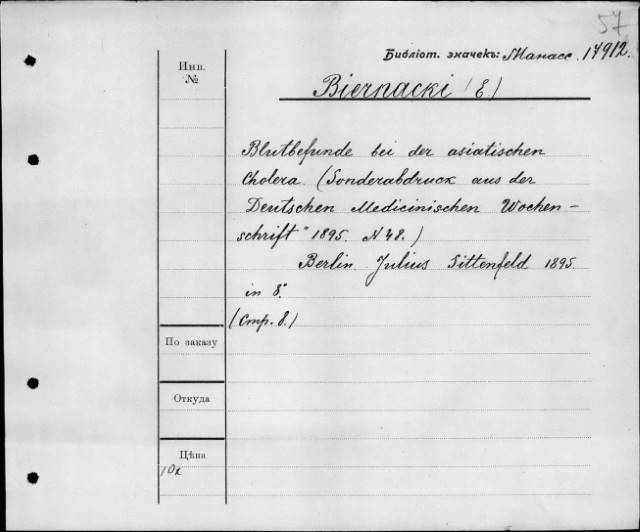 57
Библіот. значекъ: Манасс. 17912.
Инв.
№
Biernacki (E)
Blutbefunde bei der asiatischen
Cholera. (Sonderabdruck aus der
Deutschen Medicinischen Wochen-
schrift" 1895. N 48.)
Berlin. Julius Sittenfeld 1895.
in 8°.
(Стр. 8.)
По заказу
Откуда
Цѣна